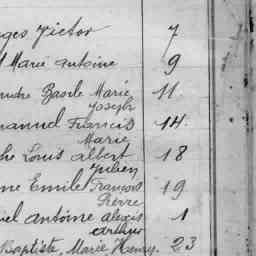 ges Victor 7
Marie Antoine 9
andre Basile Marie 11
Joseph
manuel Francis 14
Marie
he Louis Albert 18
Julien
ne Emile François 19
Pierre
iel Antoine Alexis 1
Arthur
Baptiste, Marie Henry 23